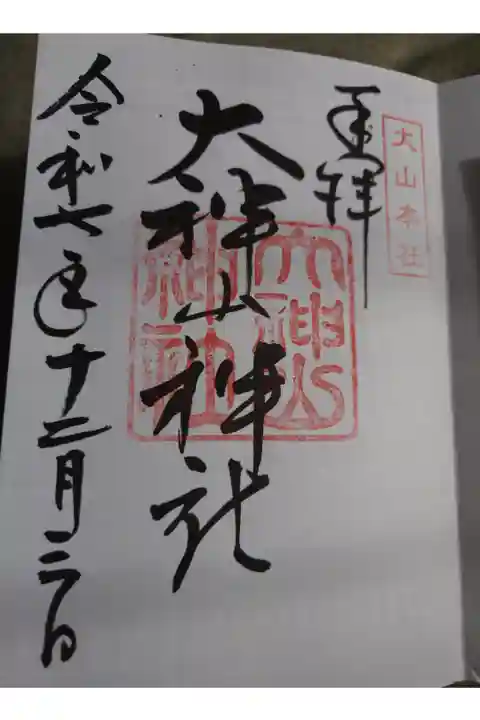 大山本社
奉拝
大神山神社
大神山神社
令和七年十二月三日